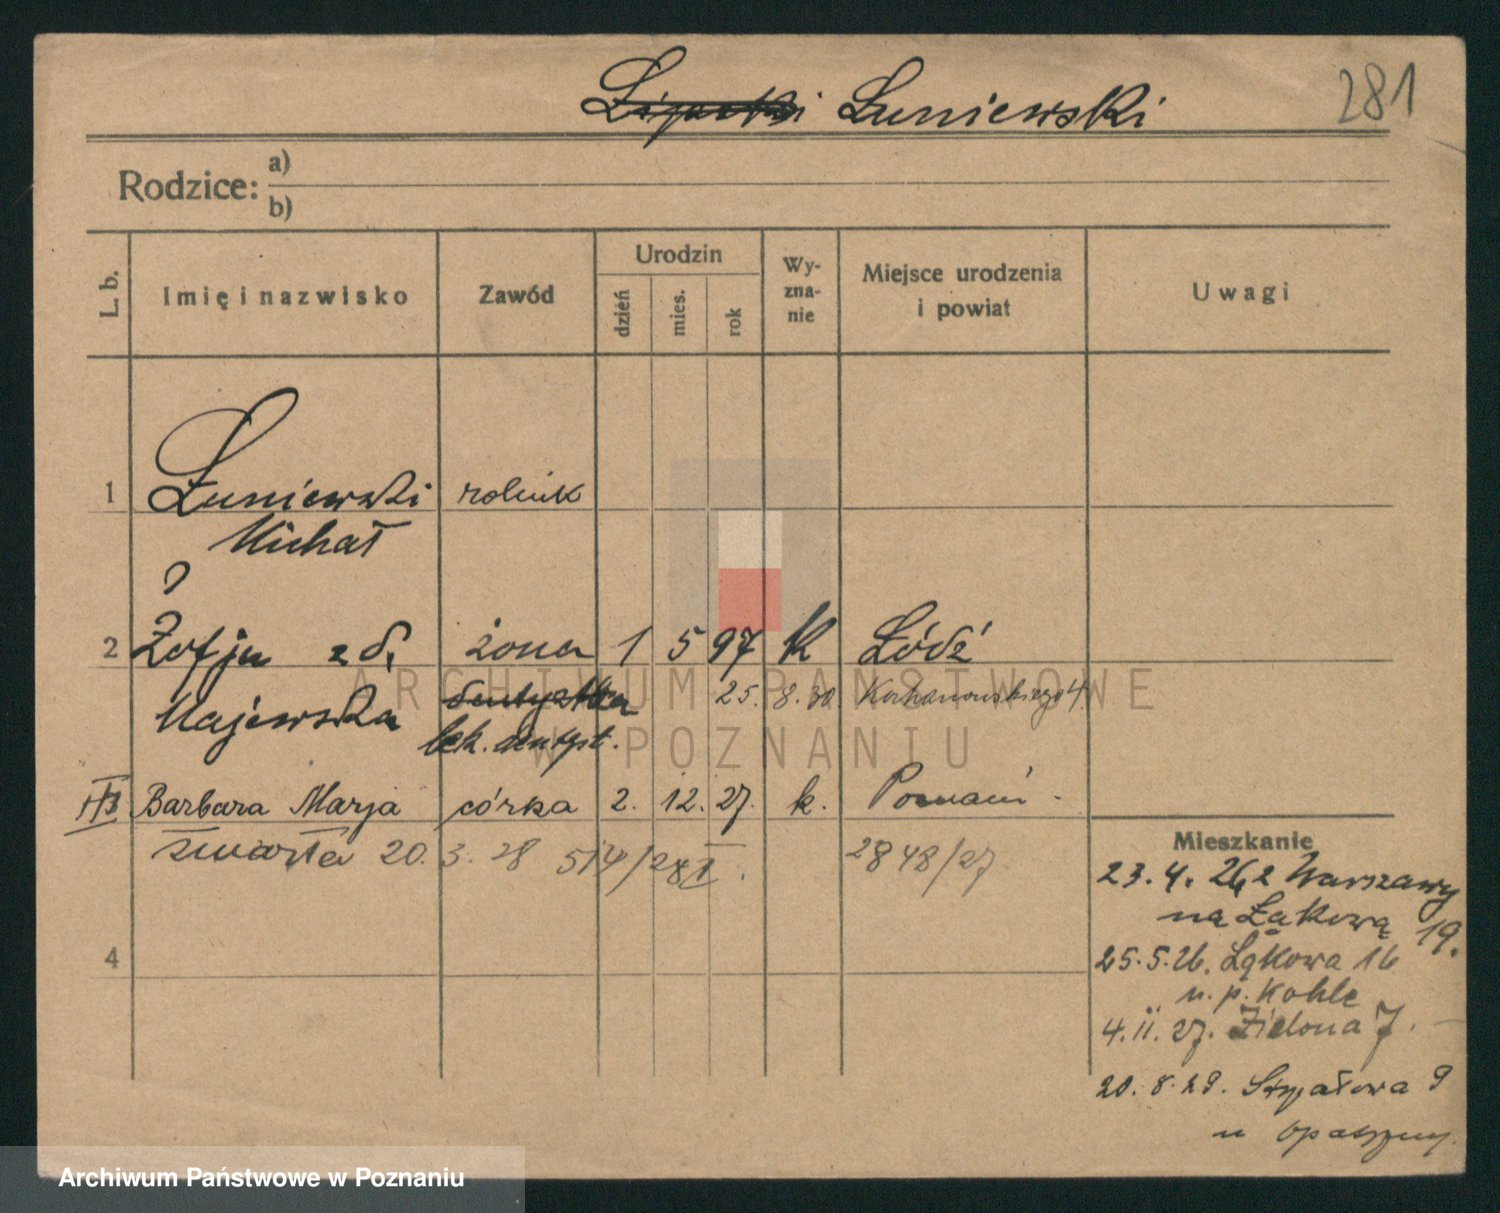 Łuniewski
281
Rodzice: a)
b)
L. b.
Imię i nazwisko
Zawód
Urodzin
dzień
mies.
rok
Wy-
zna-
nie
Miejsce urodzenia
i powiat
Uwagi
1 Łuniewski rolnik
Michał
?
2 Zofja z d. żona 1 5 97 k Łódź
Majewska dentystka 25. 8. 30 Kochanowskiego 4.
lek. dentyst.
3 Barbara Marja córka 2. 12. 27. k. Poznań.
zmarła 20. 3. 28 514/28 I. 2848/27.
4
Mieszkanie
23. 4. 26, z Warszawy
na Łąkową 19.
25. 5. 26. Łąkowa 16
u. p. Kohle
4. II. 27. Zielona 7.
20. 8. 29. Strzałowa 9
u
ARCHIWUM PAŃSTWOWE
W POZNANIU
Archiwum Państwowe w Poznaniu